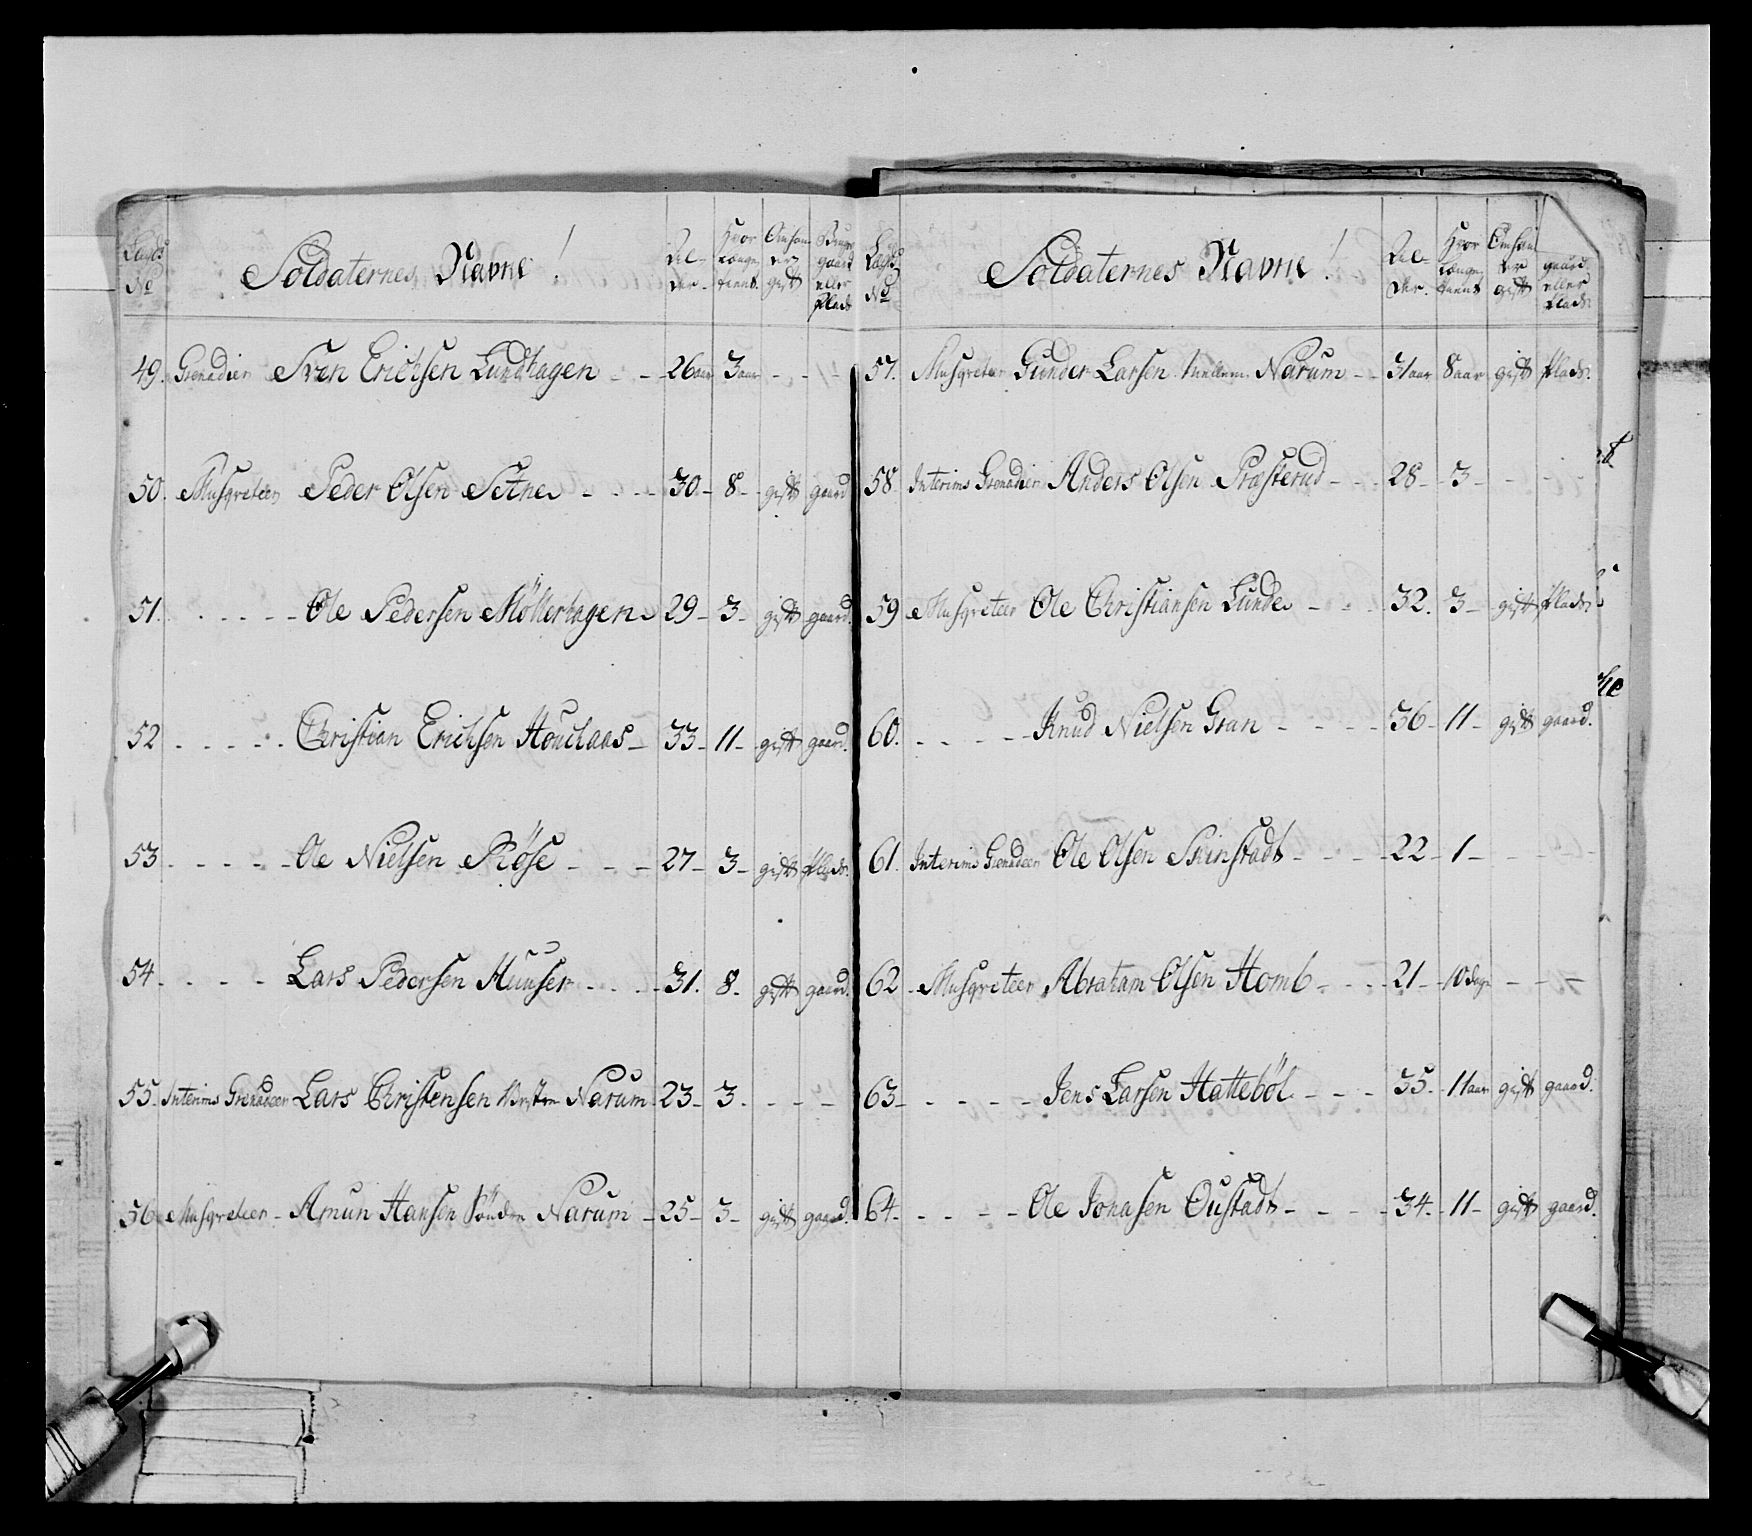 Lægds No
Soldaternes Navne!
Al-
der.
Hvor
længe
tient.
Om han
er
gift
Bruger
gaard
eller
Plads
49. Grenadier Sven Erichsen Lundhagen - - 26 aar 3 aar - - -
50. Musqveteer Peder Olsen Sætne - - - 30 - 8 - gift gaard
51. - - - - - Ole Pedersen Möllerhagen 29 - 3 - gift gaard.
52 - - - - - Christian Erichsen Houclaas - 33 - 11 - gift gaard.
53. - - - - - Ole Nielsen Röse - - - 27 - 3 - gift Plads.
54. - - - - Lars Pedersen Huuser - - - 31. 8. gift gaard.
55. Interims Grenadeer Lars Christensen Vesten Narum 23 - 3. - - -
56 Musqveteer - Amun Hansen Sönden Narum - 25 - 3 - gift gaard.
Lægds No
Soldaternes Navne!
Al-
der.
Hvor
længe
tient
Om han
er
gift
gaard
eller
Plads.
57. Musqveteer Gunder Larsen Mellem Narum - - 31 aar 8 aar gift Plads.
58. Interims Grenadier Anders Olsen Præsterud - - - 28 - 3 - - - -
59 Musqveteer Ole Christiansen Lunde - - - 32. 3 - gift Plads.
60. - - - - - Knud Nielsen Gran - - - - 36 - 11 - gift gaard.
61. Interims Grenadeer Ole Olsen Skinstadt - - - - 22 - 1 - - - -
62 - Musqveteer Abraham Olsen Homb - - - - 21 - 10 dage - - -
63 - - - - - - Jens Larsen Hatteböl - - - 35. 11 aar gift gaard.
64. - - - - - Ole Jonasen Oustadt - - - - 34. 11 - gift gaard.